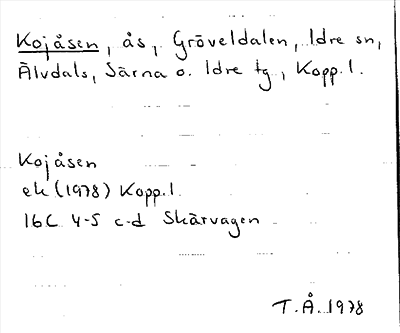 Kojåsen, ås, Gröveldalen, Idre sn,
Älvdals, Särna o. Idre tg, Kopp. l.
Kojåsen
ek (1978) Kopp. l.
16C 4-5 c-d Skärvagen
T.Å. 1978